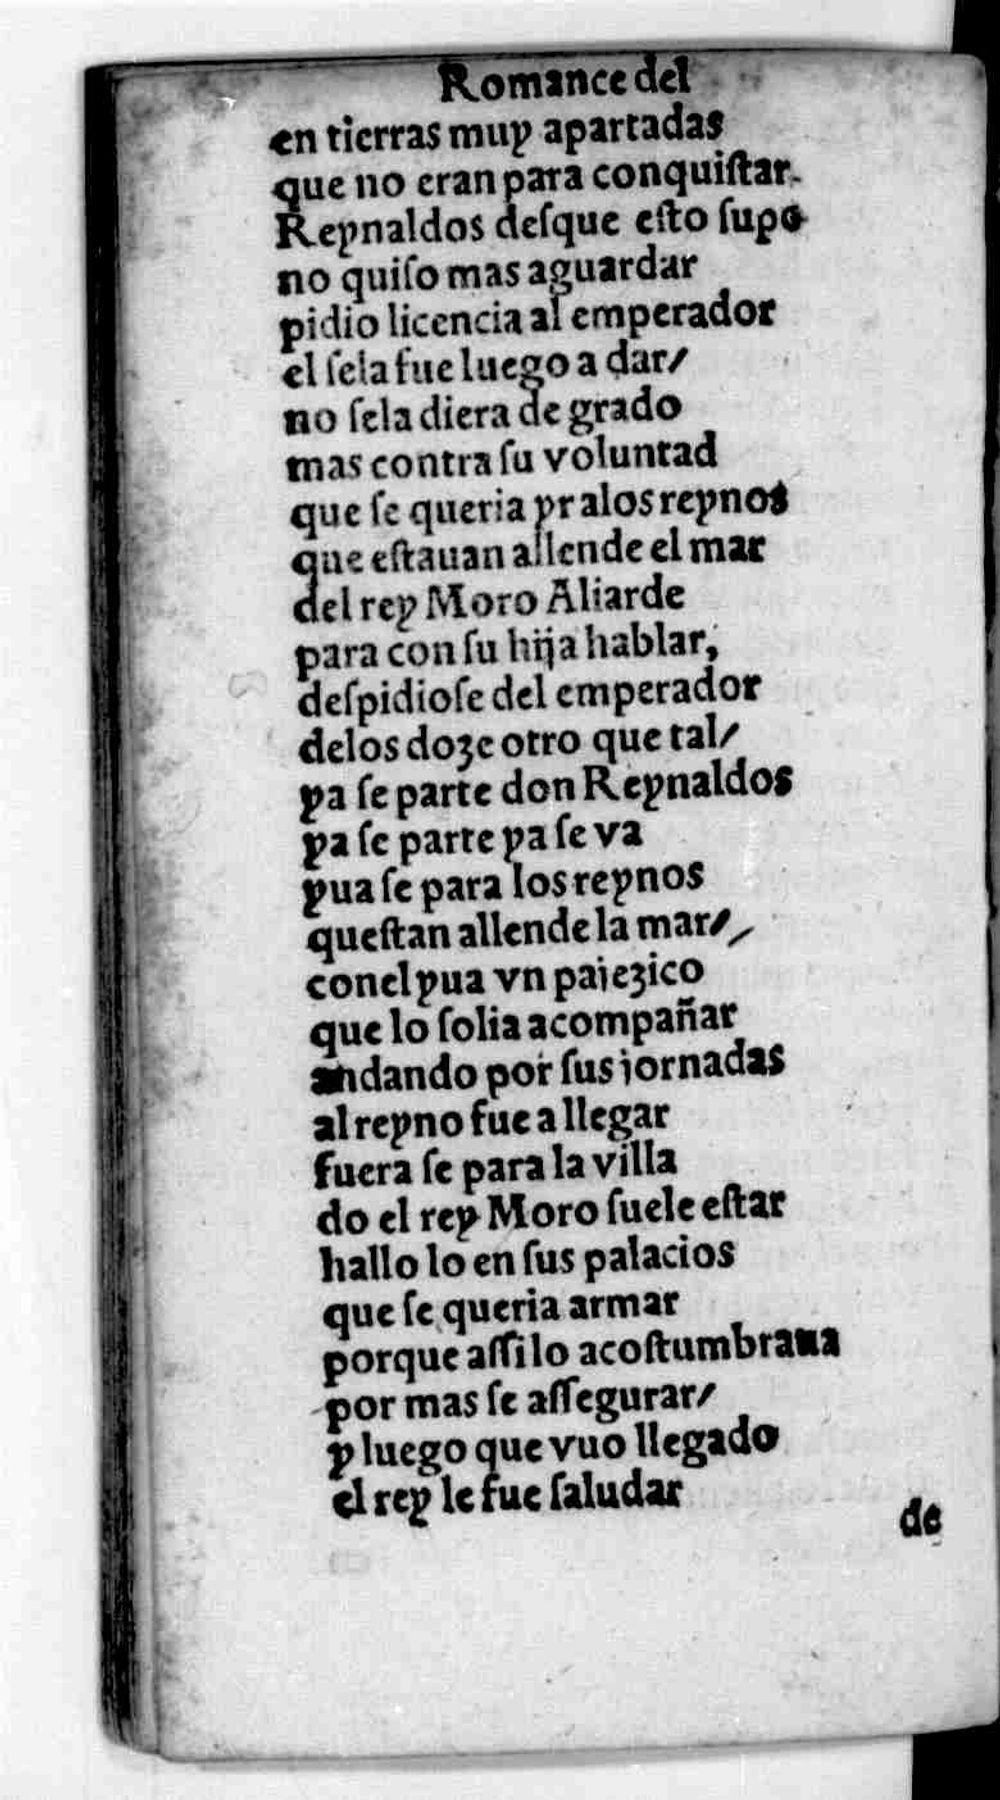 Romance del
en tierras muy apartadas
que no eran para conquiſtar.
Reynaldos deſque eſto ſupo
no quiſo mas aguardar
pidio licencia al emperador
el ſela fue luego a dar/
no ſela diera de grado
mas contra ſu voluntad
que ſe queria yr alos reynos
que eſtauan allende el mar
del rey Moro Aliarde
para con ſu hija hablar,
deſpidioſe del emperador
delos doze otro que tal/
ya ſe parte don Reynaldos
ya ſe parte ya ſe va
yua ſe para los reynos
queſtan allende la mar/
conel yua vn pajezico
que lo ſolia acompañar
andando por ſus jornadas
al reyno fue a llegar
fuera ſe para la villa
do el rey Moro ſuele eſtar
hallo lo en ſus palacios
que ſe queria armar
porque aſſi lo acoſtumbraua
por mas ſe aſſegurar/
y luego que vuo llegado
el rey le fue ſaludar
de